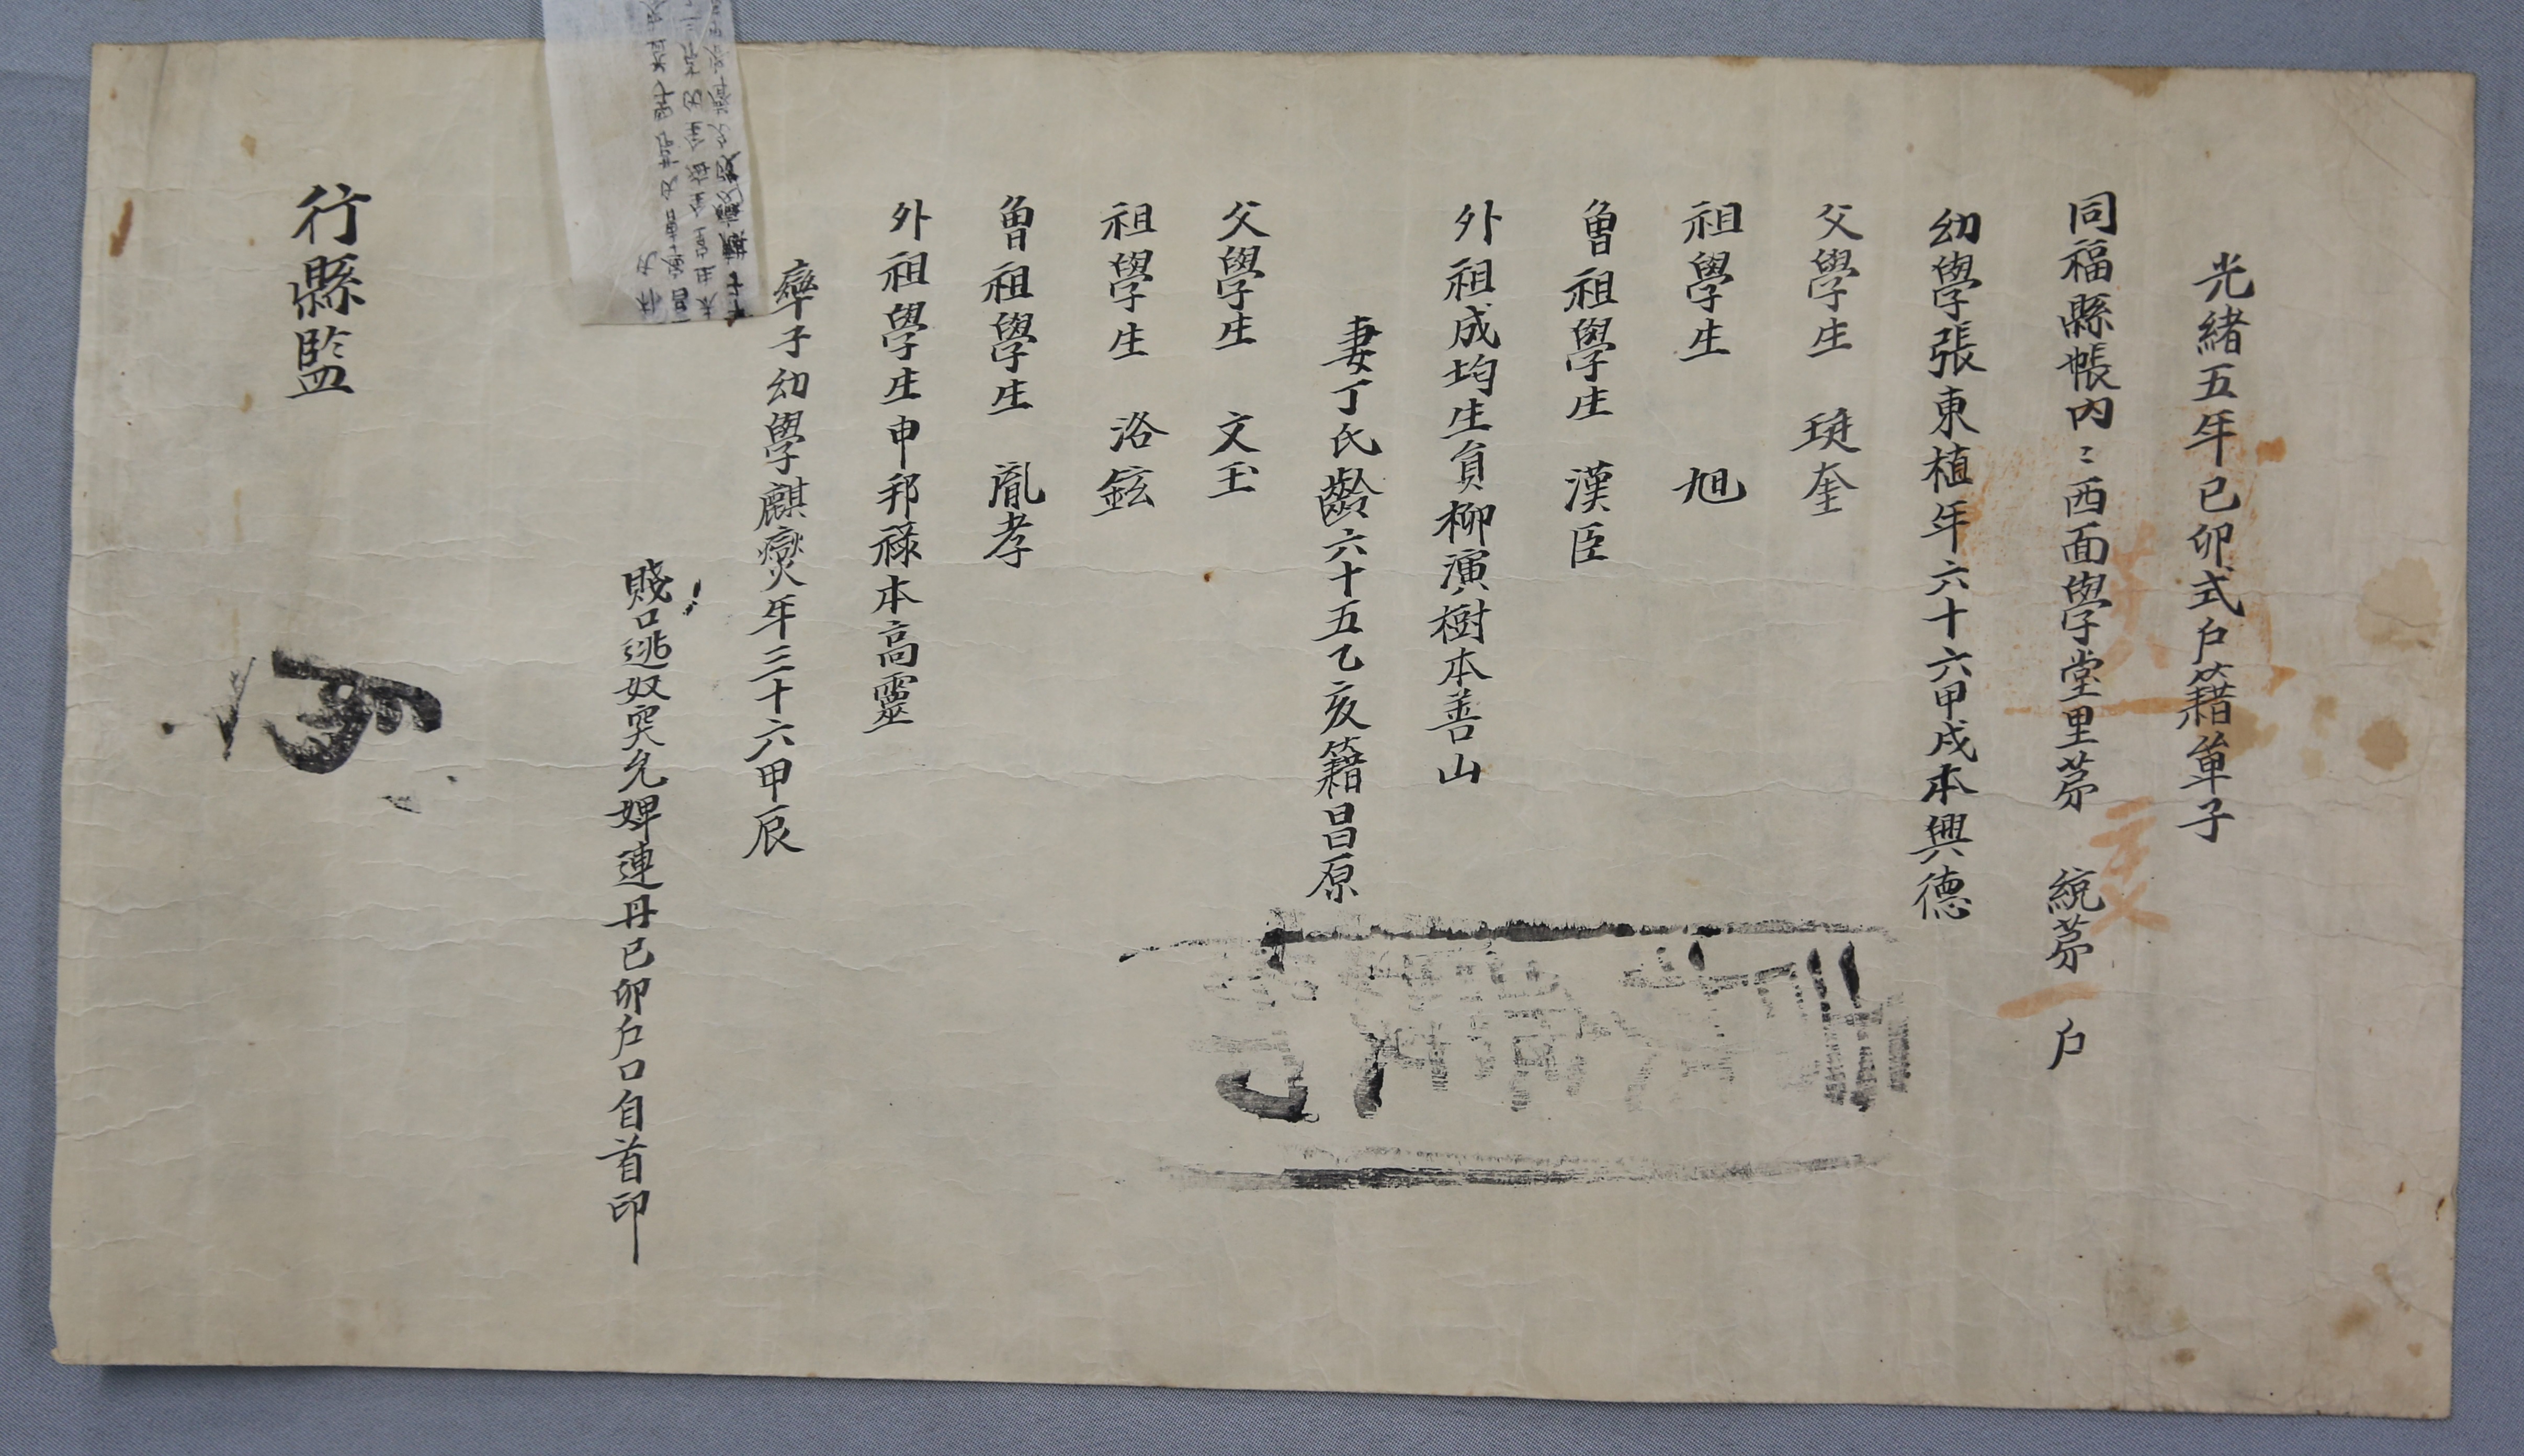 光緖五年己卯式戶籍單子
同福縣帳內：西面學堂里苐 統苐一戶
幼學張東植年六十六甲戌本興德
父學生 奎
祖學生 旭
曾祖學生 漢臣
外祖成均生員柳演樹本善山
妻丁氏齡六十五乙亥籍昌原
父學生 文玉
祖學生 洛鉉
曾祖學生 胤孝
外祖學生申邦祿本高靈
率子幼學麒燮年三十六甲辰
賤口逃奴突允婢連丹己卯戶口自首印
行縣監